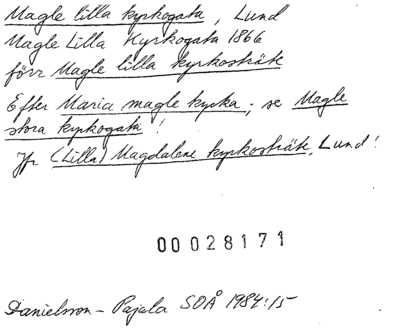 Magle lilla kyrkogata, Lund
Magle Lilla Kyrkogata 1866
förr Magle lilla kyrkosträte
Efter Maria magle kyrka; se Magle
stora kyrkogata!
Jfr (Lilla) Magdalene kyrkosträte, Lund!
00028171
Danielsson - Pajala SOÅ 1984:15